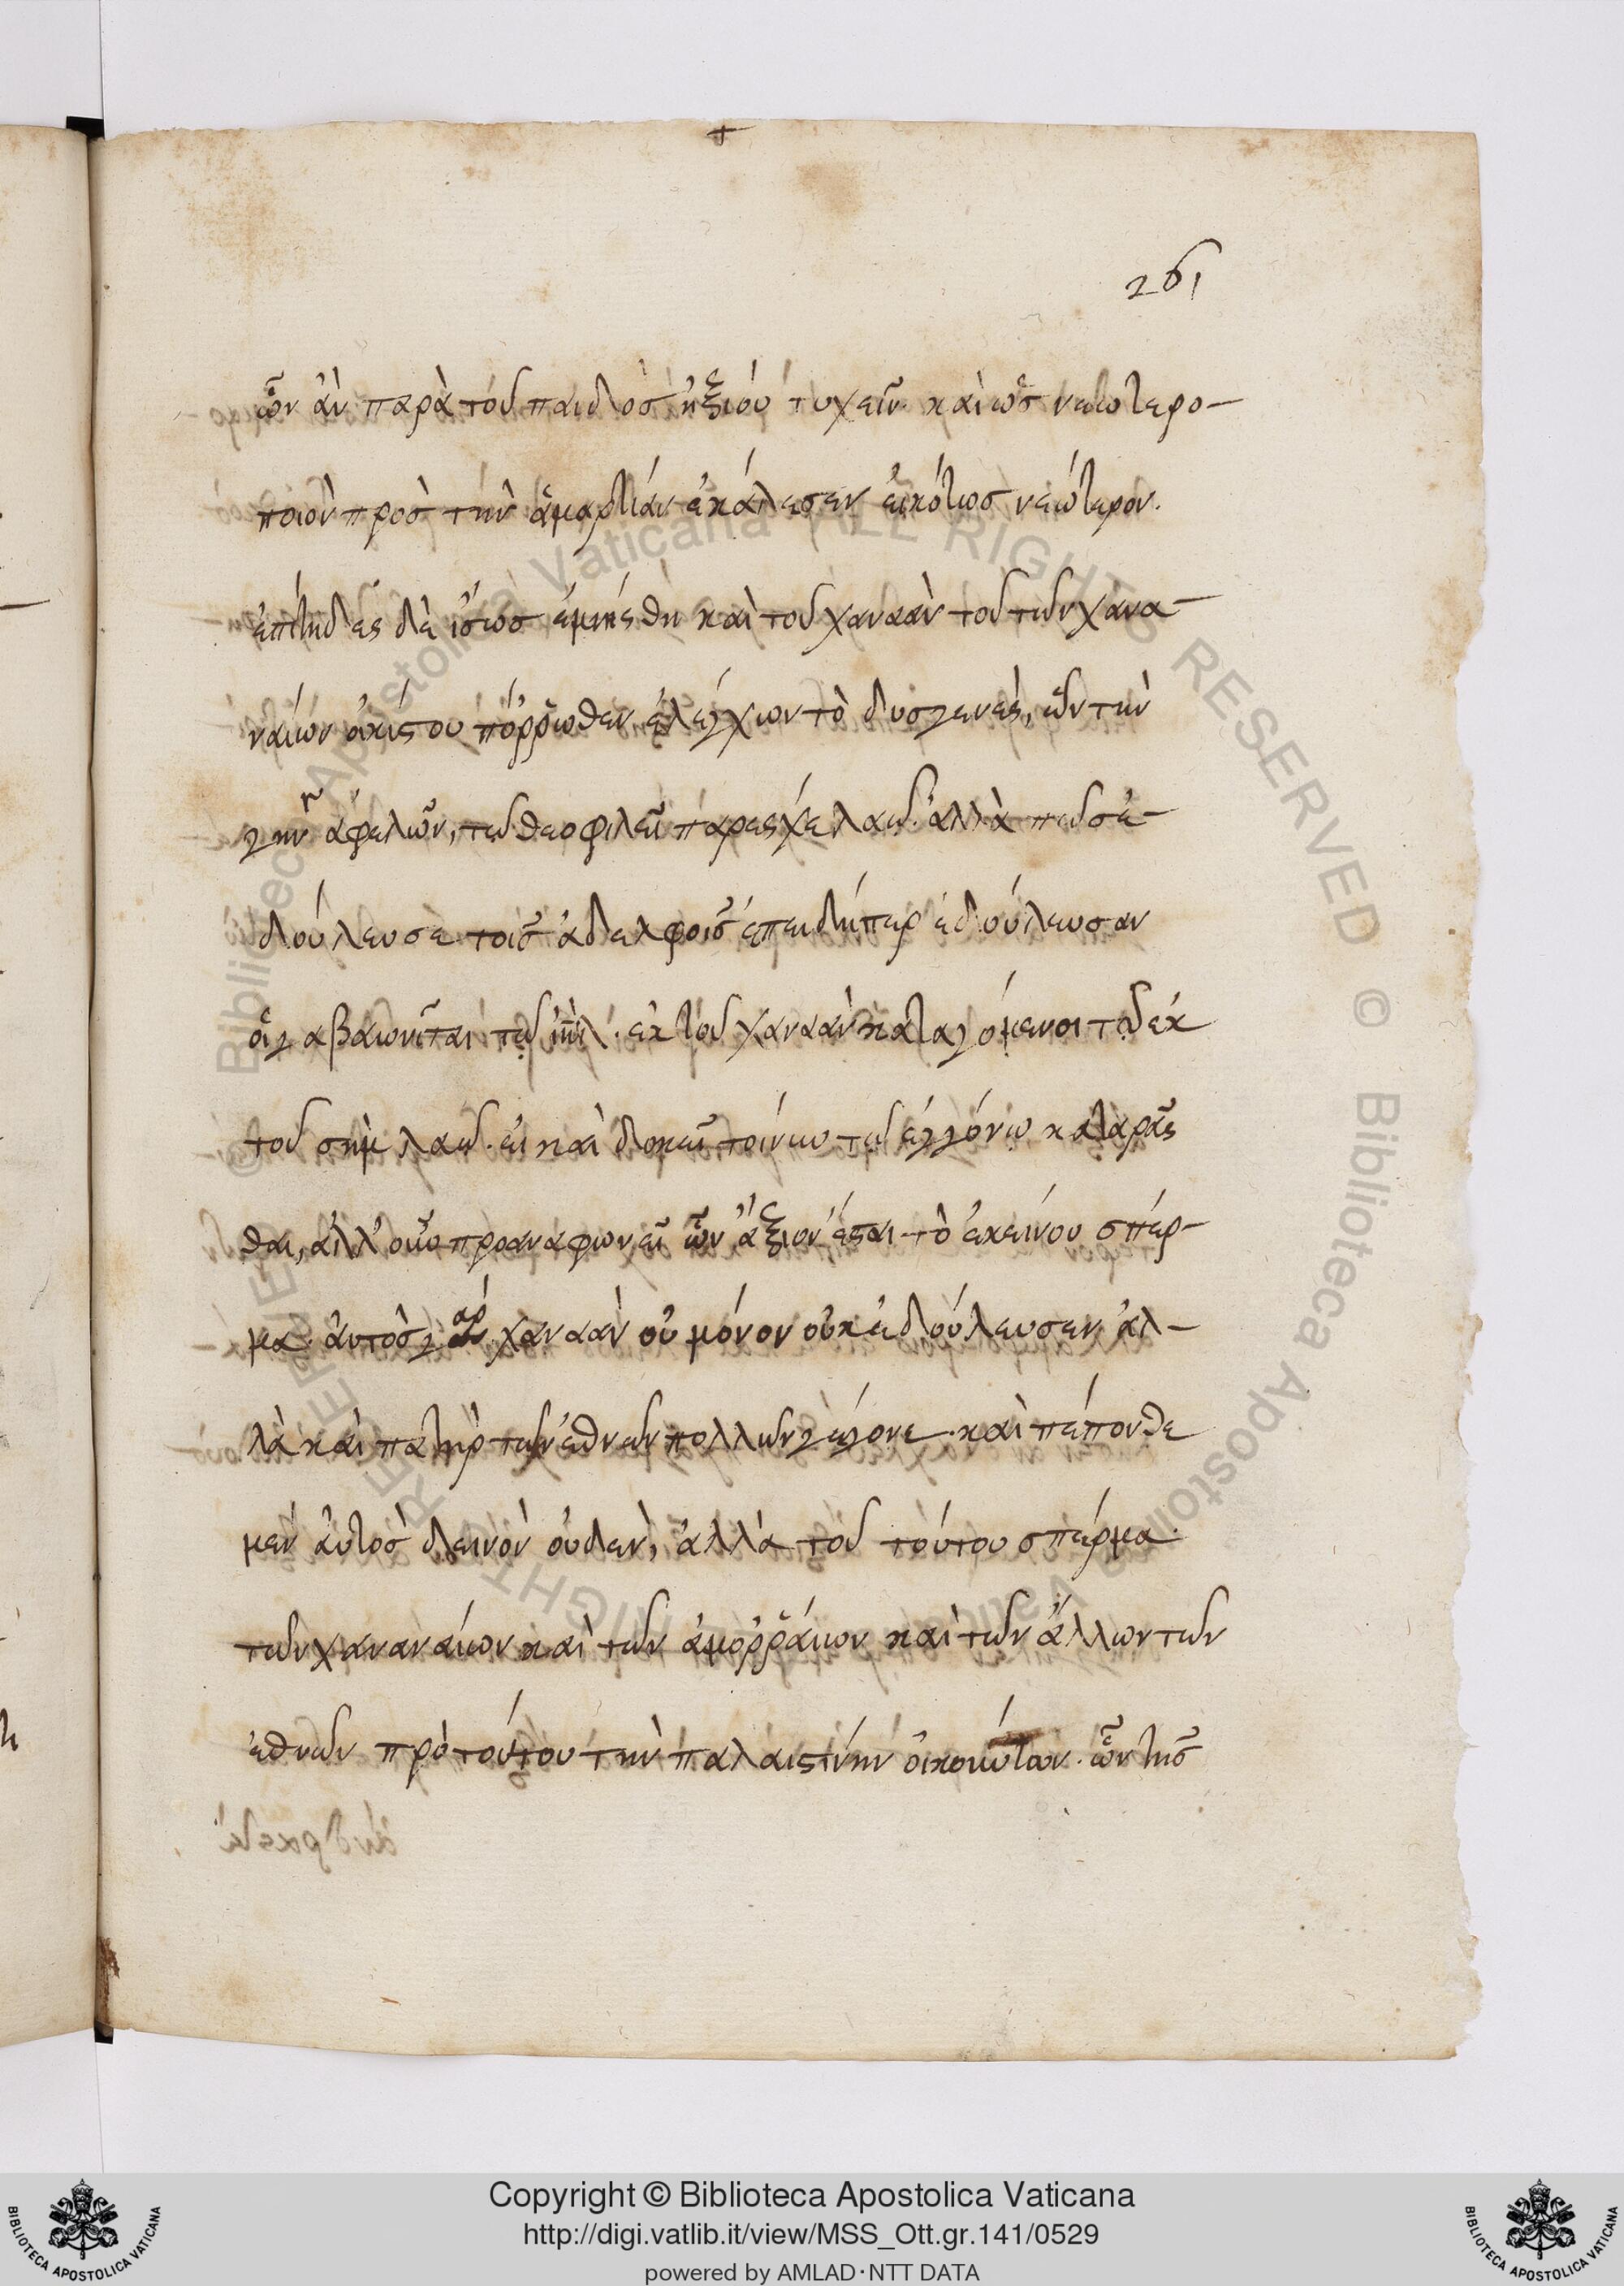 261
ὧν ἂν παρὰ τοῦ παιδὸς ἠξίου τυχεῖν. καὶ ὡς νεωτερο-
ποιὸν πρὸς τὴν ἁμαρτίαν ἐκάλεσεν εἰκότως νεώτερον.
ἐπίτηδες δὲ ἴσως ἐμνήσθη καὶ τοῦ χαναὰν τοῦ τῶν χανα-
ναίων οἰκιστοῦ πόρρωθεν ἐλέγχων τὸ δυσγενές, ὧν τὴν
γῆν ἀφελὼν, τῷ θεοφιλεῖ παρέσχε λαῷ. ἀλλὰ πῶς ἐ-
δούλευσε τοῖς ἀδελφοῖς ἐπειδήπερ ἐδούλευσαν
οἱ γαβαωνῖται τῷ ἰηλ. ἐκ τοῦ χαναὰν καταγόμενοι τῷ ἐκ
τοῦ σὴμ λαῷ. εἰ καὶ δοκεῖ τοίνυν τῷ ἐγγόνῳ καταρᾶσ
θαι, ἀλλ' οὖν προαναφωνεῖ ὧν ἄξιον ἔσται τὸ ἐκείνου σπέρ-
μα. αὐτὸς γὰρ χαναὰν οὐ μόνον οὐκ ἐδούλευσεν ἀλ-
λὰ καὶ πατὴρ τῶν ἐθνῶν πολλῶν γέγονε. καὶ πέπονθε
μὲν αὐτὸς δεινὸν οὐδὲν, ἀλλὰ τοῦ τούτου σπέρμα.
τῶν χαναναίων καὶ τῶν ἀμορραίων καὶ τῶν ἄλλων τῶν
ἐθνῶν πρὸ τούτου τὴν παλαιστίνην οἰκούντων. ὧν τῆς
Copyright © Biblioteca Apostolica Vaticana
http://digi.vatlib.it/view/MSS_Ott.gr.141/0529
powered by AMLAD·NTT DATA
BIBLIOTECA APOSTOLICA VATICANA
BIBLIOTECA APOSTOLICA VATICANA